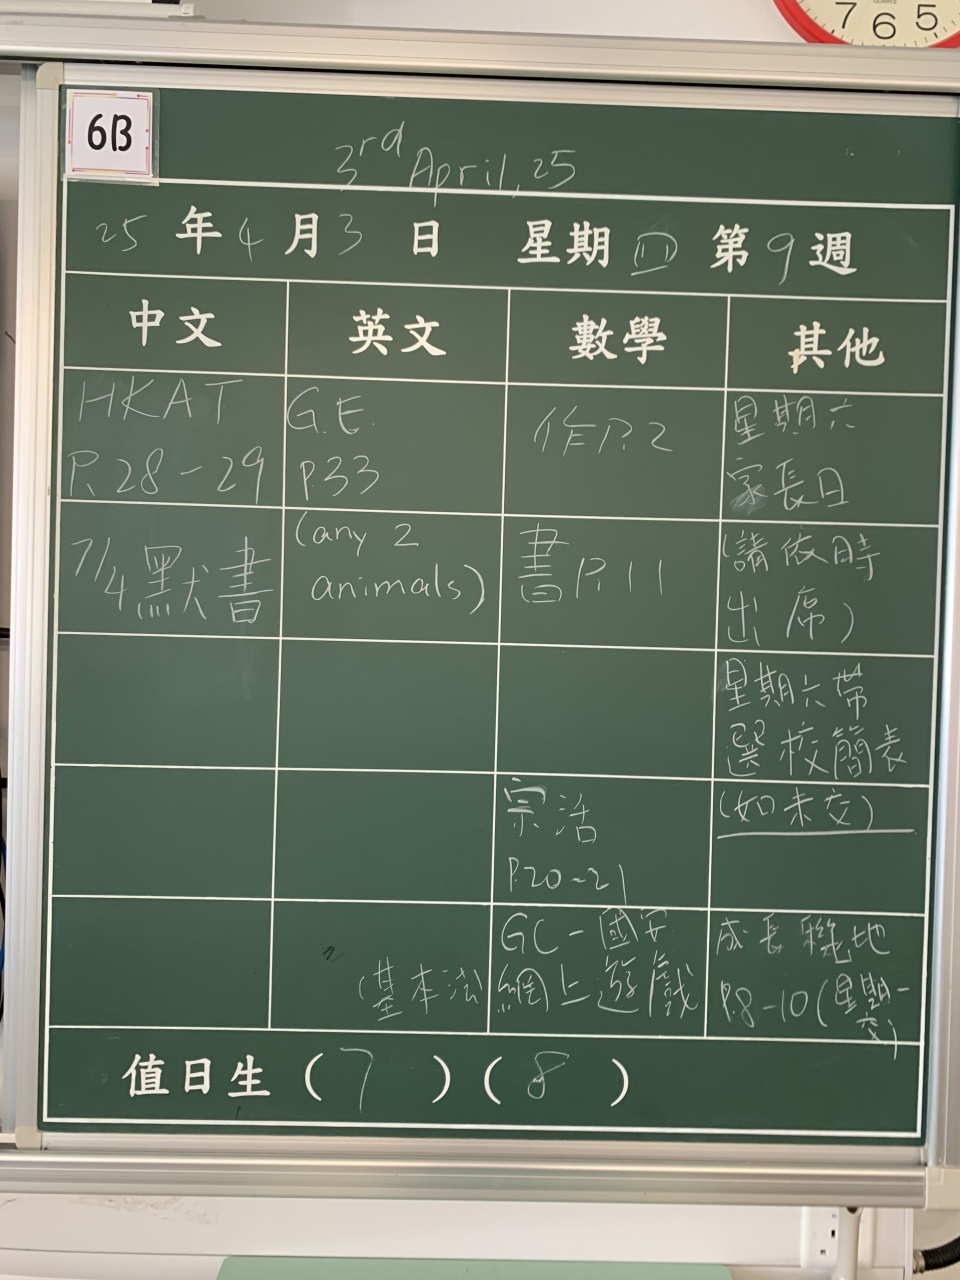 7 6 5
6B
3rd April, 25
25 年 4 月 3 日 星期 四 第 9 週
中文 英文 數學 其他
HKAT
P.28-29
G.E.
P.33
作P.2
星期六
家長日
7/4默書
(any 2
animals)
書P.11
(請依時
出席)
星期六帶
選校簡表
宗活
P.20-21
(如未交)
GC-國安
(基本法) 網上遊戲
成長 地
P.8-10(星期一
交)
值日生 ( 7 ) ( 8 )